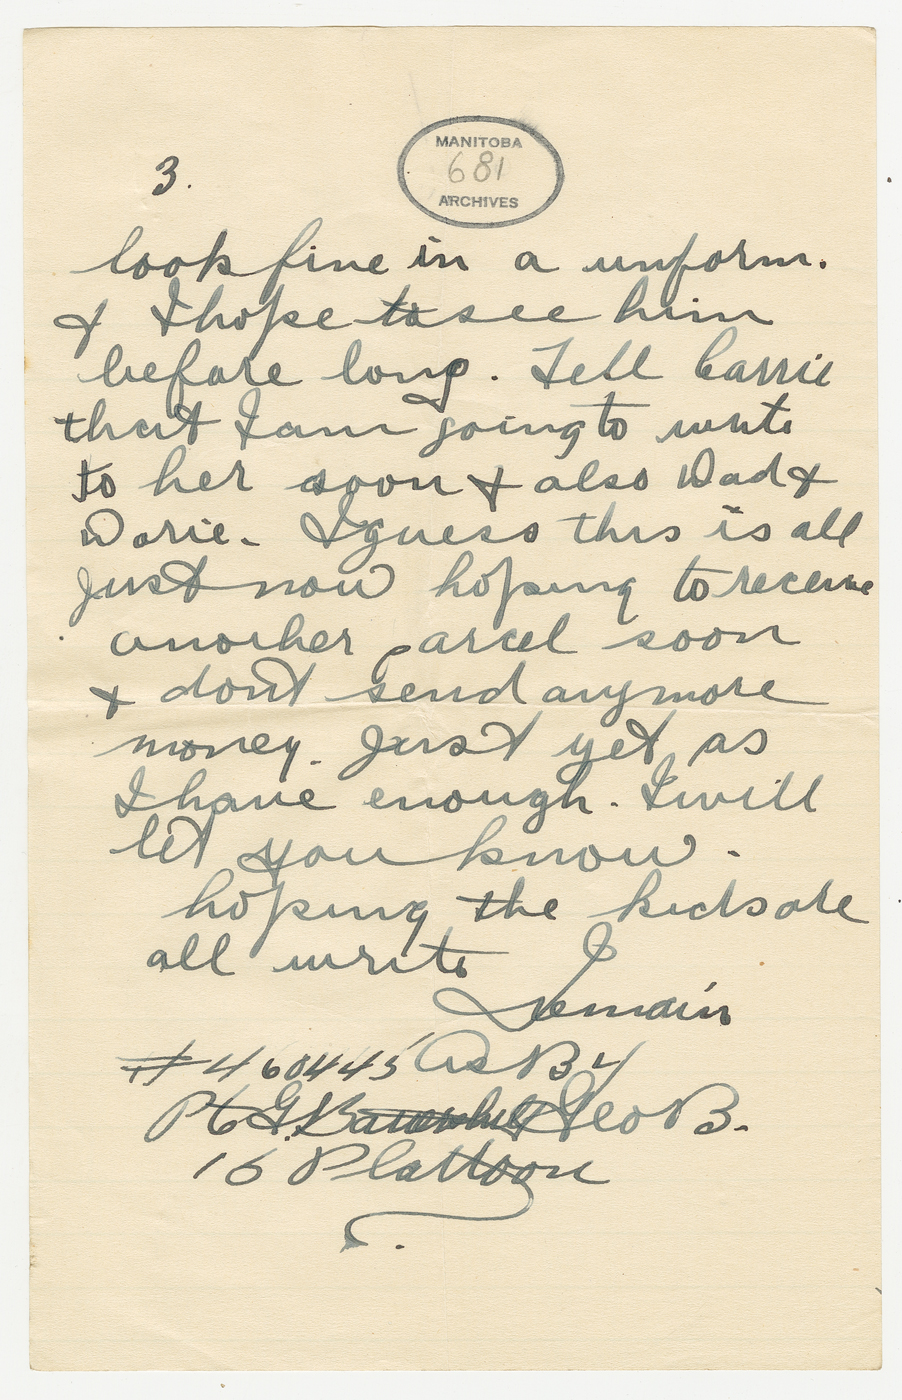 MANITOBA
681
ARCHIVES
3.
look fine in a unform.
& I hope to see him
before long. Tell Carrie
that I am going to write
to her soon & also Dad &
Dorie. I guess this is all
Just now hoping to receive
another parcel soon
& dont send anymore
money. Just yet as
I have enough. I will
let you know.
hoping the kids are
all write I
Remain
#460445 As B4
Pt G. Geo B.
16 Plattoon